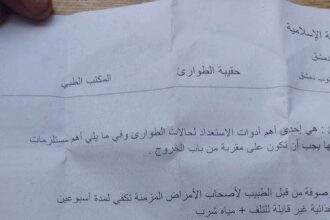 ة الإسلامية
دمشق
وب دمشق
حقيبة الطوارئ
المكتب الطبي
: هي إحدى أهم أدوات الاستعداد لحالات الطوارئ وفي ما يلي أهم مستلزمات
ها يجب أن تكون على مقربة من باب الخروج .
صوفة من قبل الطبيب لأصحاب الأمراض المزمنة تكفي لمدة أسبوعين
ذائية غير قابلة للتلف + مياه شرب